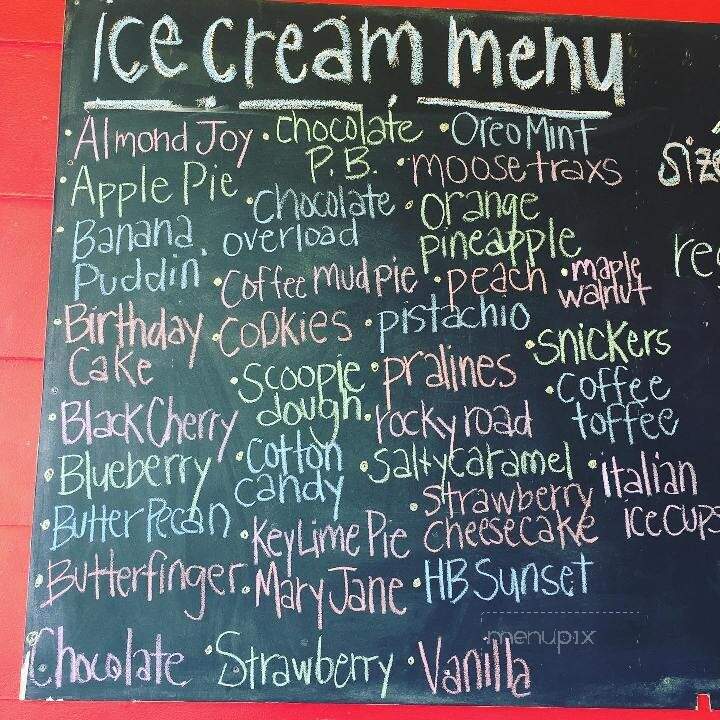 Ice cream menu
• Almond Joy
• Apple Pie
• Banana
Puddin
• Birthday
Cake
• Black Cherry
• Blueberry
• Butter Pecan
• Butterfinger
• chocolate
P.B.
• chocolate
overload
• Coffee mud pie
• COOKIES
• scoopie
dough
• cotton
candy
• Key Lime Pie
• Mary Jane
• Oreo Mint
• moosetraxs
• orange
pineapple
• peach
• maple
walnut
• pistachio
• snickers
• pralines
• coffee
toffee
• rocky road
• salty caramel
• italian
ice cups
• strawberry
cheesecake
• HB Sunset
• Chocolate • Strawberry • Vanilla
size
menupix